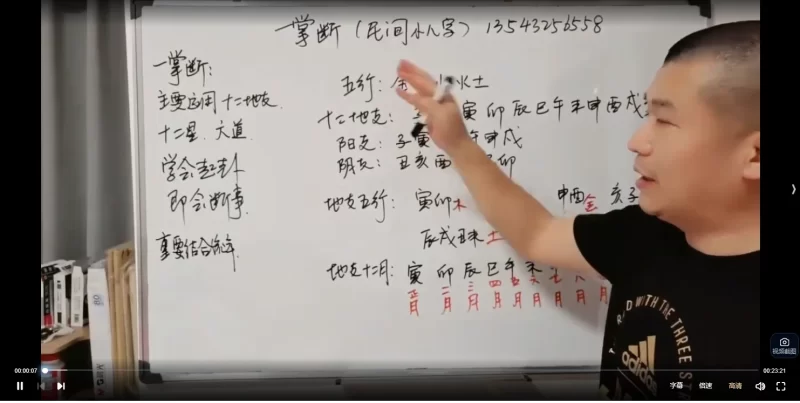 一掌断（民间小八字）13543256558
一掌断：
主要运用十二地支
十二星、六道
学会起盘
即会断事
重要结合流年
五行：金 水土
十二地支： 寅卯辰巳午未申酉戌
阳支：子寅 午申戌
阴支：丑亥酉 卯
地支五行：寅卯木 申酉金 亥子
辰戌丑未土
地支十二月：寅 卯 辰 巳 午 未
正月 二月 三月 四月 五月 六月 七月 八月 月
WITH THE THREE
adidas
视频截图
00:00:07
00:23:21
字幕 倍速 高清